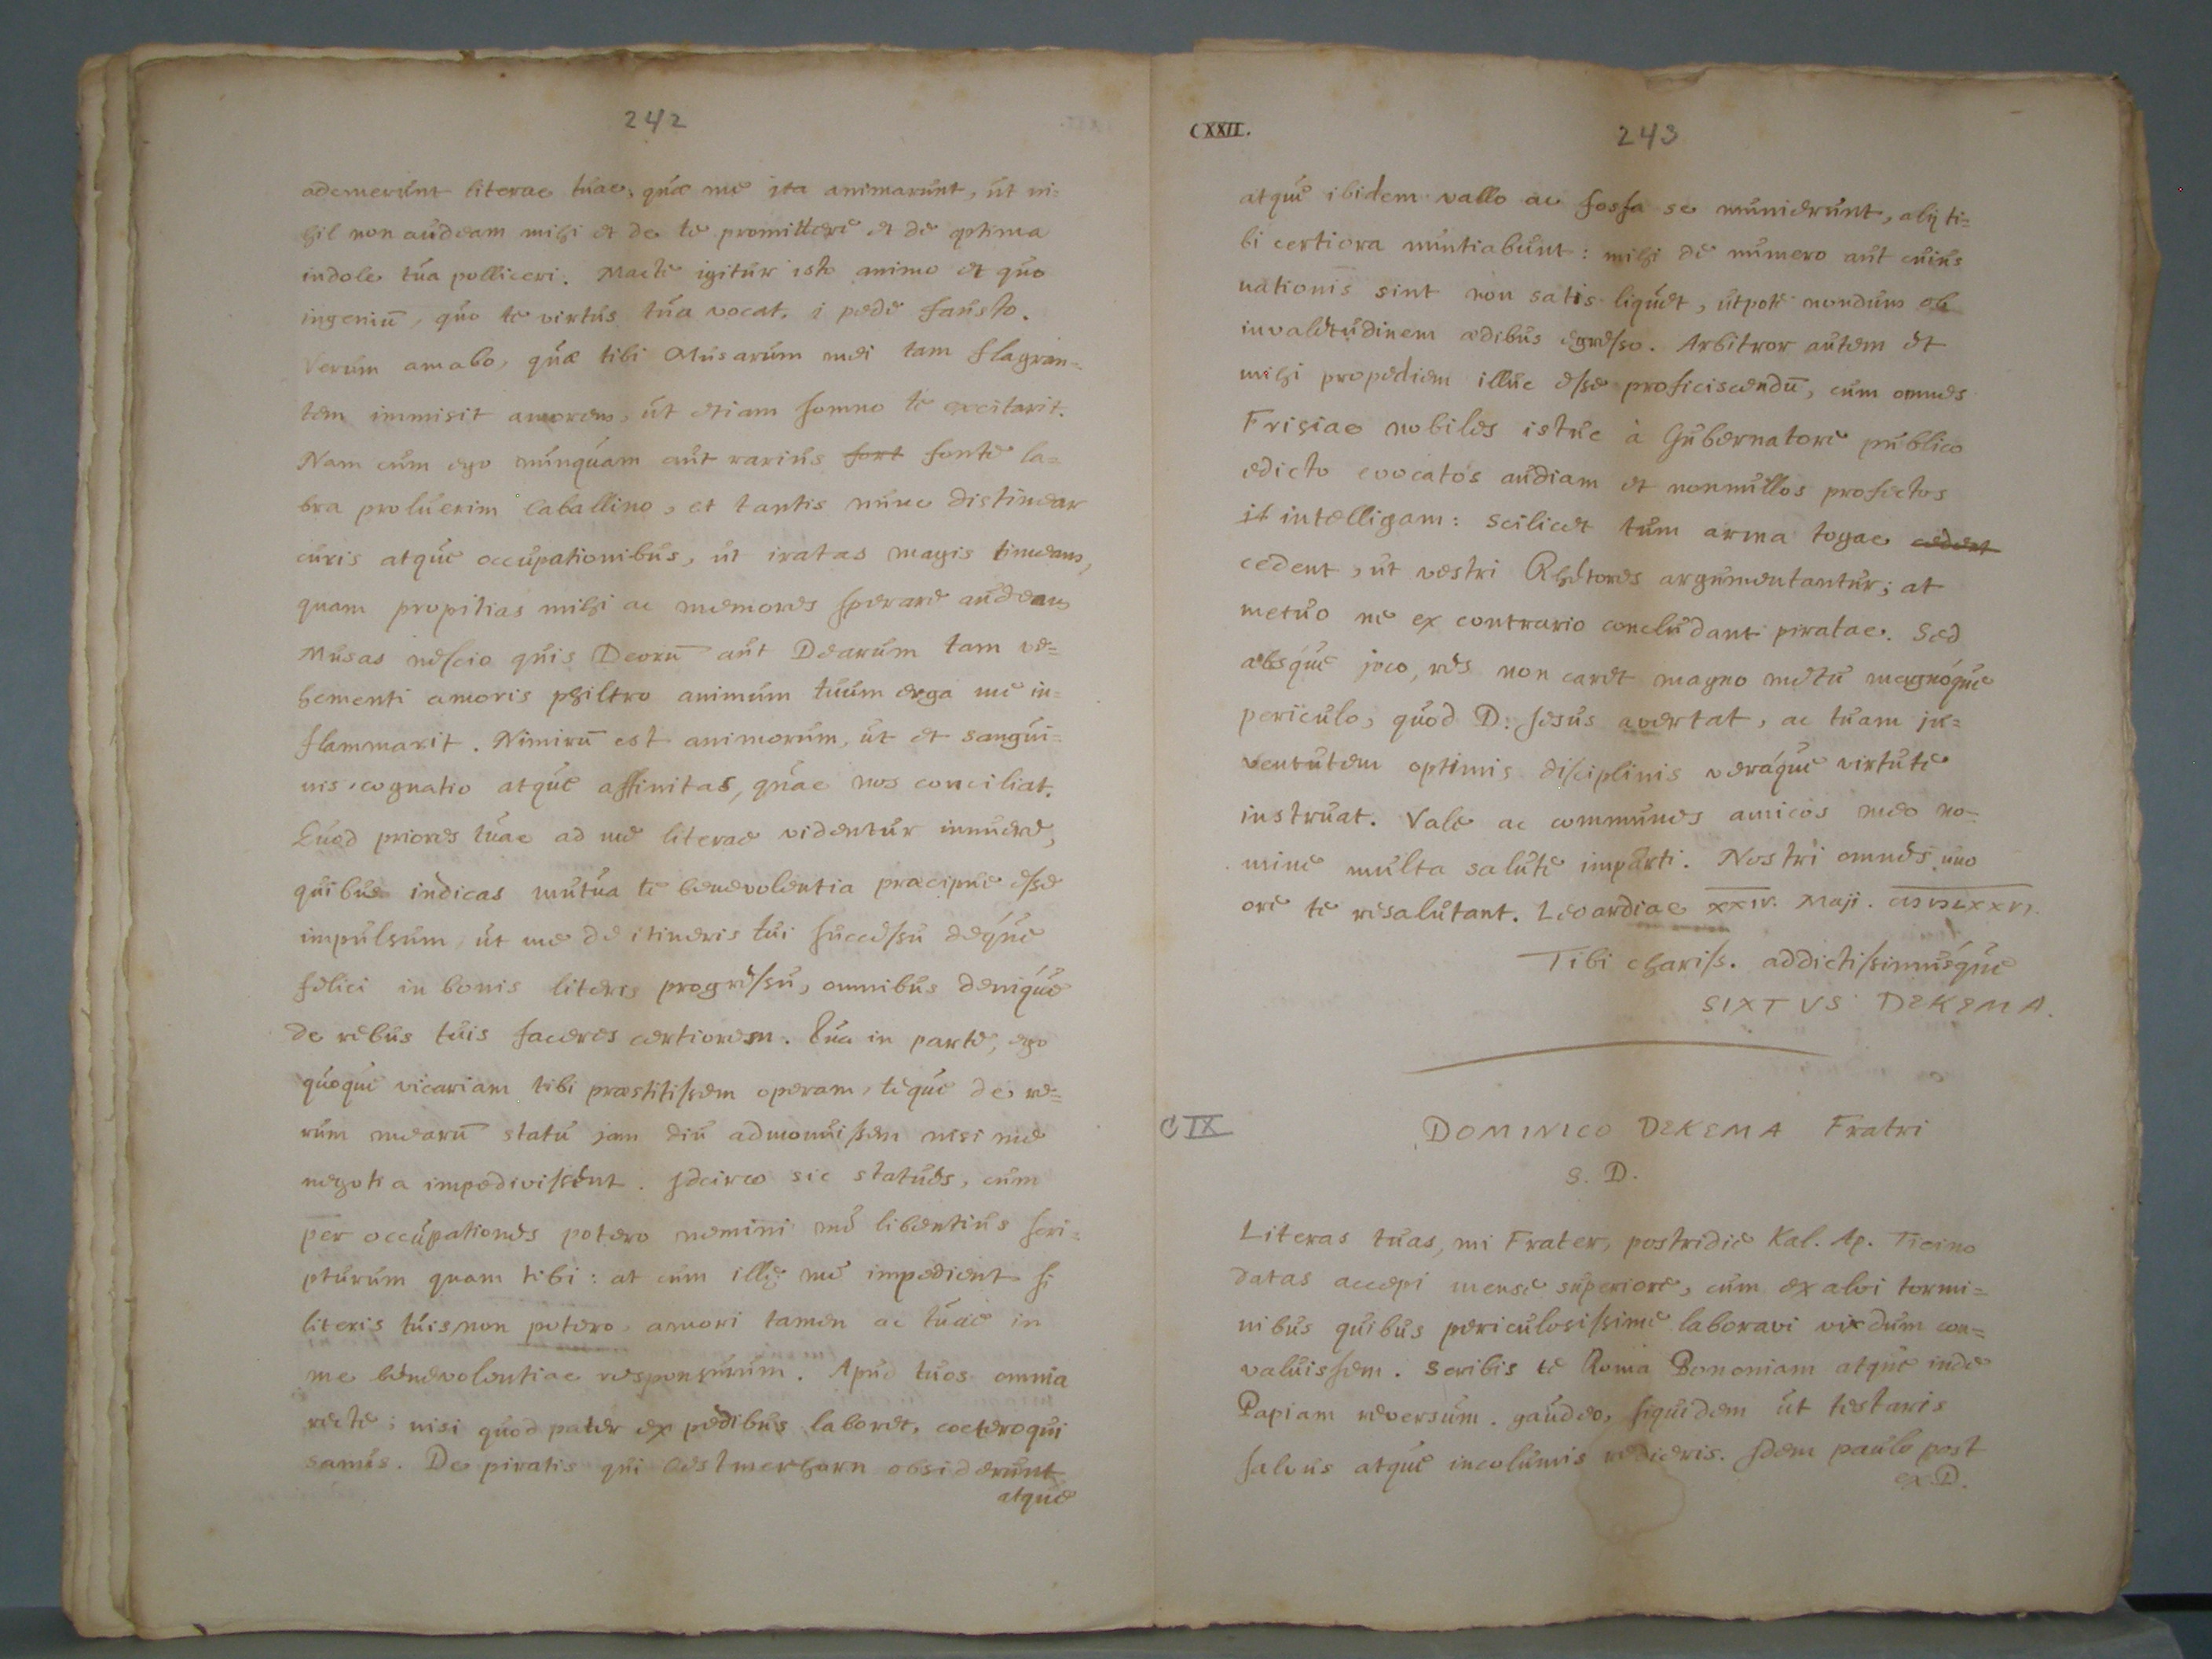 242
ademerunt literae tuae, quae me ita animarunt, ut ni-
hil non audeam mihi et de te promittere et de optima
indole tua polliceri. Macte igitur isto animo et quo
ingeniū, quo te virtus tua vocat, i pede fausto.
Verum amabo, quae tibi Musarum mei tam flagran-
tem immisit amorem, ut etiam somno te excitarit.
Nam cum ego nunquam aut rarius fort fonte la-
bra proluerim caballino, et tantis nunc distinear
curis atque occupationibus, ut iratas magis timeam,
quam propitias mihi ac memores sperare audeam
Musas nescio quis Deorū aut Dearum tam ve-
hementi amoris philtro animum tuum erga me in-
flammarit. Nimirū est animorum, ut et sangui-
nis, cognatio atque affinitas, quae nos conciliat.
Quod priores tuae ad me literae videntur innuere,
quibus indicas mutua te benevolentia praecipue esse
impulsum, ut me de itineris tui successu deque
felici in bonis literis progressu, omnibus denique
de rebus tuis faceres certiorem. Qua in parte, ego
quoque vicariam tibi praestitissem operam, teque de re-
rum mearū statu jam diu admonuissem nisi me
negotia impedivissent. Idcirco sic statues, cum
per occupationes potero nemini me libentius scri-
pturum quam tibi: at cum illę me impedient si
literis tuis non potero, amori tamen ac tuae in
me benevolentiae responsurum. Apud tuos omnia
recte; nisi quod pater ex pedibus laboret, coeteroqui
sanus. De piratis qui Oostmerhorn obsiderunt
atque
CXXII.
243
atque ibidem vallo ac fossa se munierunt, alij ti-
bi certiora nuntiabunt: mihi de numero aut cuius
nationis sint non satis liquet, utpote nondum ob
invaletudinem aedibus egresso. Arbitror autem et
mihi propediem illuc esse proficiscendū, cum omnes
Frisiae nobiles istuc à Gubernatore publico
edicto evocatos audiam et nonnullos profectos
jt intelligam: scilicet tum arma togae cedent
cedent, ut vestri Rhetores argumentantur; at
metuo ne ex contrario concludant piratae. Sed
absque joco, res non caret magno metu magnoque
periculo, quod D. Jesus avertat, ac tuam ju-
ventutem optimis disciplinis veraque virtute
instruat. Vale ac communes amicos meo no-
mine multa salute imparti. Nostri omnes uno
ore te resalutant. Leoardiae XXIV. Maji. CIƆ IƆ LXXVI.
Tibi chariss. addictissimusque
SIXTVS DEKEMA.
CIX
DOMINICO DEKEMA Fratri
S. D.
Literas tuas, mi Frater, postridie Kal. Ap. Ticino
datas accepi mense superiore, cum ex alvi tormi-
nibus quibus periculosissime laboravi vixdum con-
valuissem. Scribis te Roma Bononiam atque inde
Papiam reversum. gaudeo, siquidem ut testaris
salvus atque incolumis redieris. Idem paulo post
ex D.